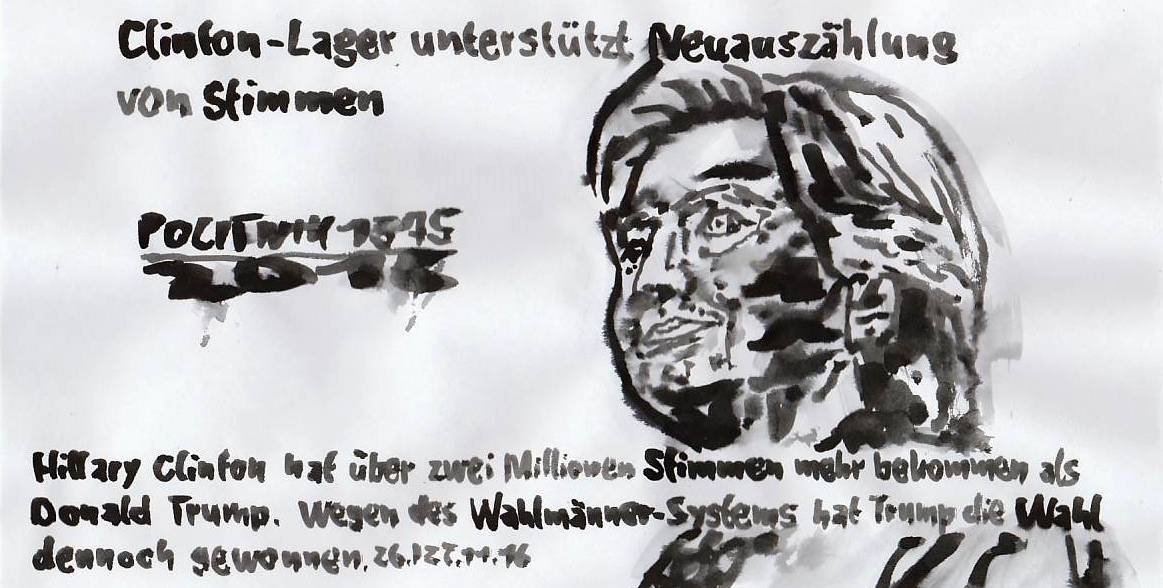 Clinton-Lager unterstützt Neuauszählung
von Stimmen
POLITWIX 1375
Hillary Clinton hat über zwei Millionen Stimmen mehr bekommen als
Donald Trump. Wegen des Wahlmänner-Systems hat Trump die Wahl
dennoch gewonnen. 26./27.11.16